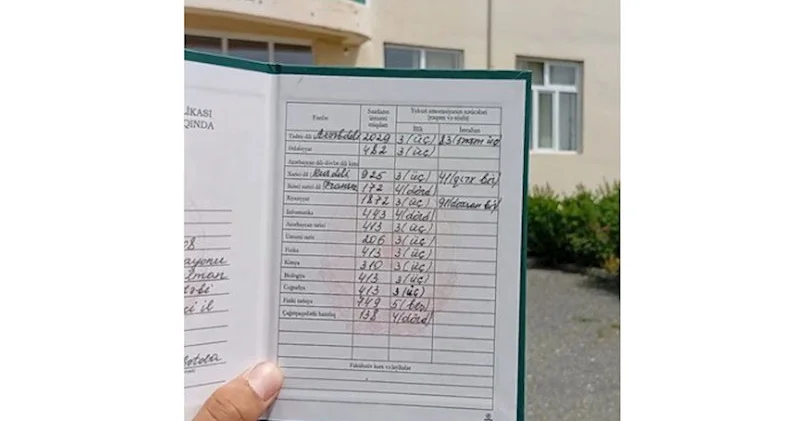 LİKASI
QINDA
Fənlər Saatların ümumi miqdarı Yekun attestasiyanın nəticələri (rəqəm və sözlə)
İllik İmtahan
Tədris dili Azərb.dili 2029 3 (üç) 83 (səksən üç)
Ədəbiyyat 482 3 (üç)
Azərbaycan dili-dövlət dili kimi
Xarici dil (Rus dili 925 3 (üç) 41 (qırx bir)
İkinci xarici dil (Fransız 172 4 (dörd)
Riyaziyyat 1872 3 (üç) 91 (doxsan bir)
İnformatika 493 4 (dörd)
Azərbaycan tarixi 413 3 (üç)
Ümumi tarix 206 3 (üç)
Fizika 413 3 (üç)
Kimya 310 3 (üç)
Biologiya 413 3 (üç)
Coğrafiya 413 3 (üç)
Fiziki tərbiyə 749 5 (beş)
Çağırışaqədərki hazırlıq 138 4 (dörd)
Fakültativ kurs və layihələr
ayonu
lman
təbi
çi il